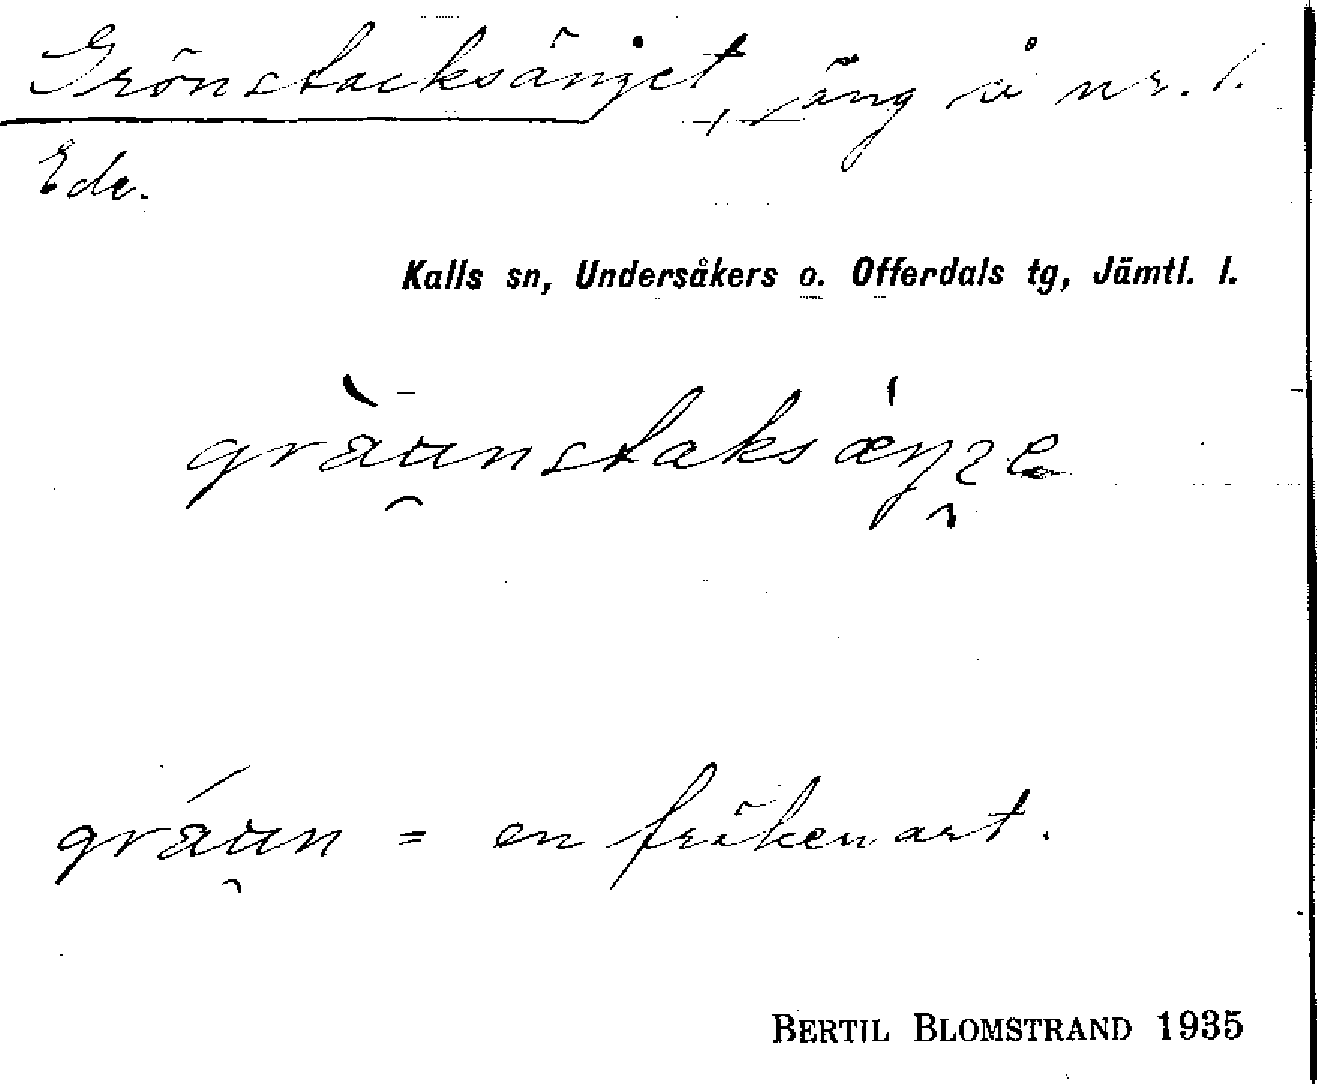 Grönstacksänget, äng å nr. 1.
Ede.
Kalls sn, Undersåkers o. Offerdals tg, Jämtl. l.
en fräkenart.
BERTIL BLOMSTRAND 1935